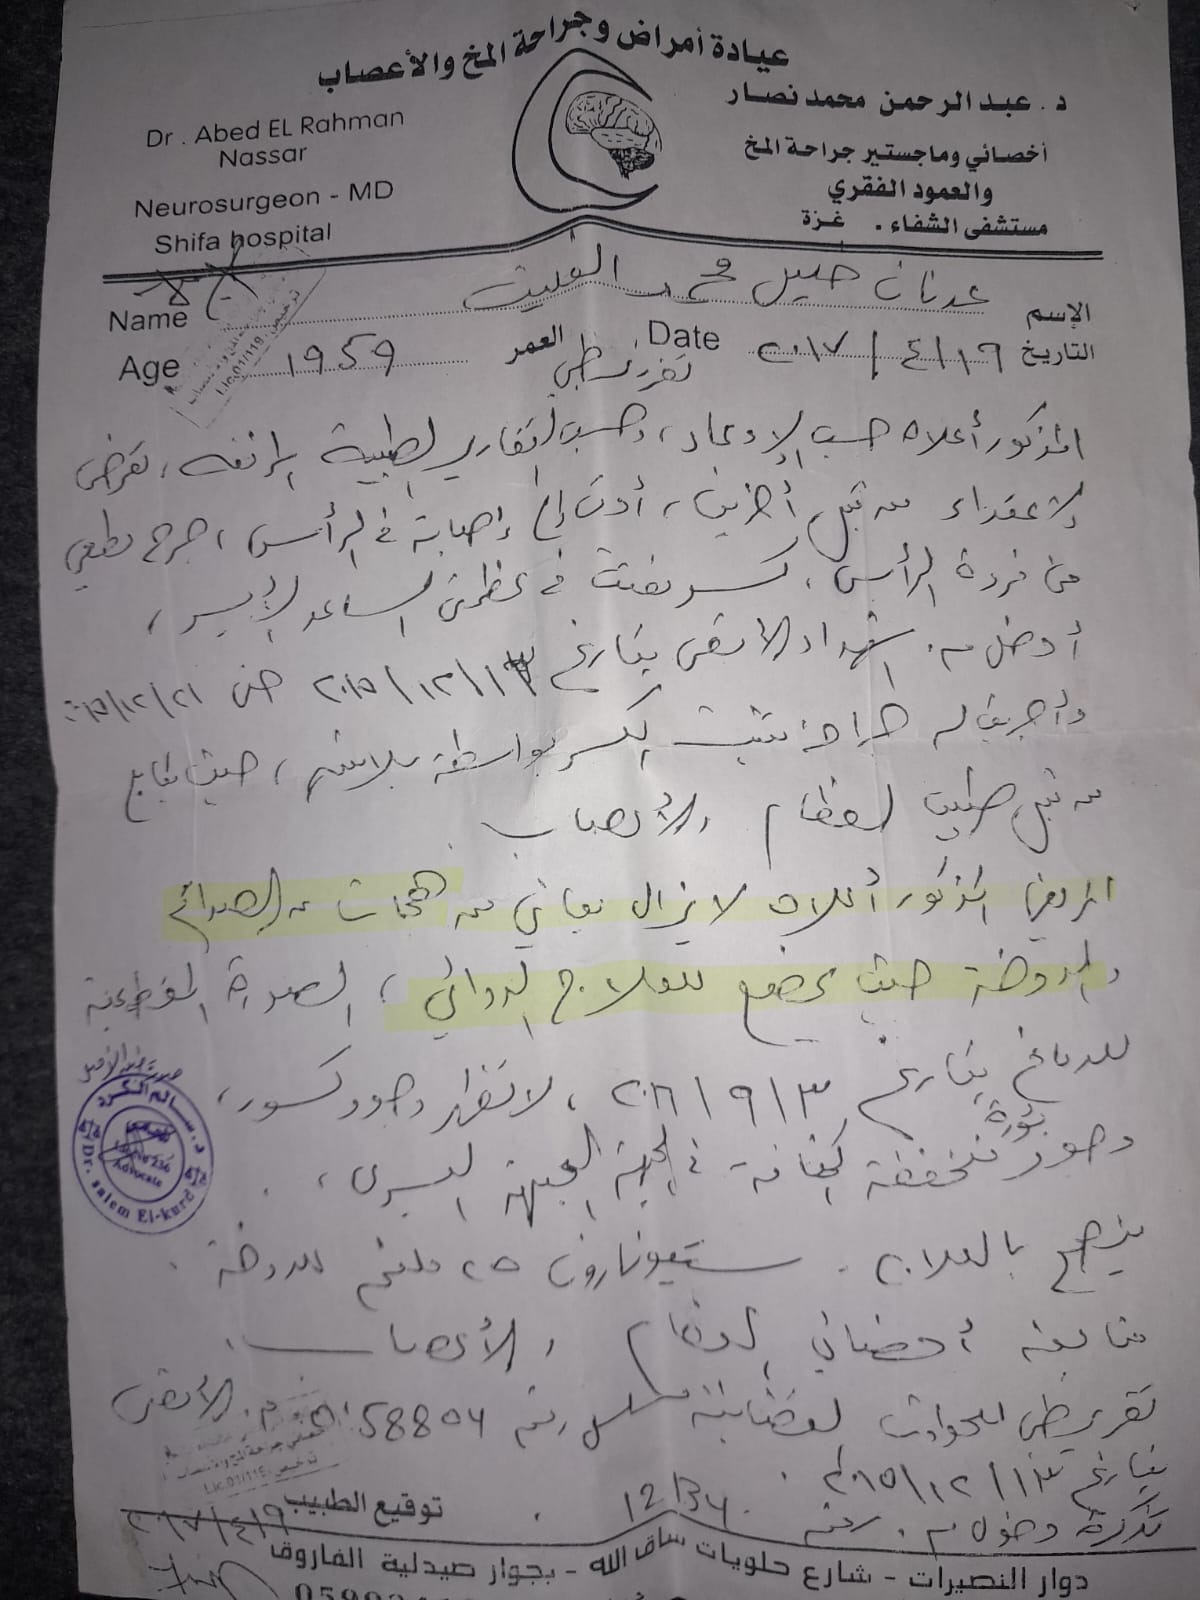 عيادة أمراض وجراحة المخ والأعصاب
د. عبد الرحمن محمد نصار
أخصائي وماجستير جراحة المخ
والعمود الفقري
مستشفى الشفاء . غزة
Dr . Abed EL Rahman
Nassar
Neurosurgeon - MD
Shifa hospital
الإسم عدنان خليل محمد Name
التاريخ ٢٠١٧/٤/١٩ Date العمر 1959 Age
تقرير طبي
المذكور أعلاه حسب الإدعاء، وحسب التقارير الطبية المرفقة، تعرض
لإعتداء من قبل آخرين، أدت إلى إصابة في الرأس، جرح قطعي
في فروة الرأس، كسر مفتت في عظمتي الساعد الأيسر،
أدخل م. شهداء الأقصى بتاريخ ٢٠١٥/١٢/١٣ حتى ٢٠١٥/١٢/٢١
وأجريت له جراحة تثبيت الكسر بواسطة بلاتين، حيث يتابع
من قبل طبيب العظام والأعصاب
المريض المذكور أعلاه لا يزال يعاني من هجمات من الصداع
والدوخة حيث يخضع للعلاج الدوائي، الصورة المقطعية
للدماغ بتاريخ ٢٠١٦/٩/٣، لا تظهر وجود كسور،
وجود بؤرة منخفضة الكثافة في الجهة اليسرى،
ينصح بالعلاج. ستيونارون ٢٥ ملغم للدوخة.
متابعة أخصائي العظام والأعصاب.
تقرير طبي للحوادث القضائية مسلسل رقم 058804 م. الأقصى
بتاريخ ٢٠١٥/١٢/١٣.
تذكرة دخول م. رقم 12134.
صورة طبق الأصل
د. سالم الكرد
Dr. salem El-kurd
Advocate
Lic.01/119
توقيع الطبيب
٢٠١٧/٤/١٩
دوار النصيرات - شارع حلويات ساق الله - بجوار صيدلية الفاروق